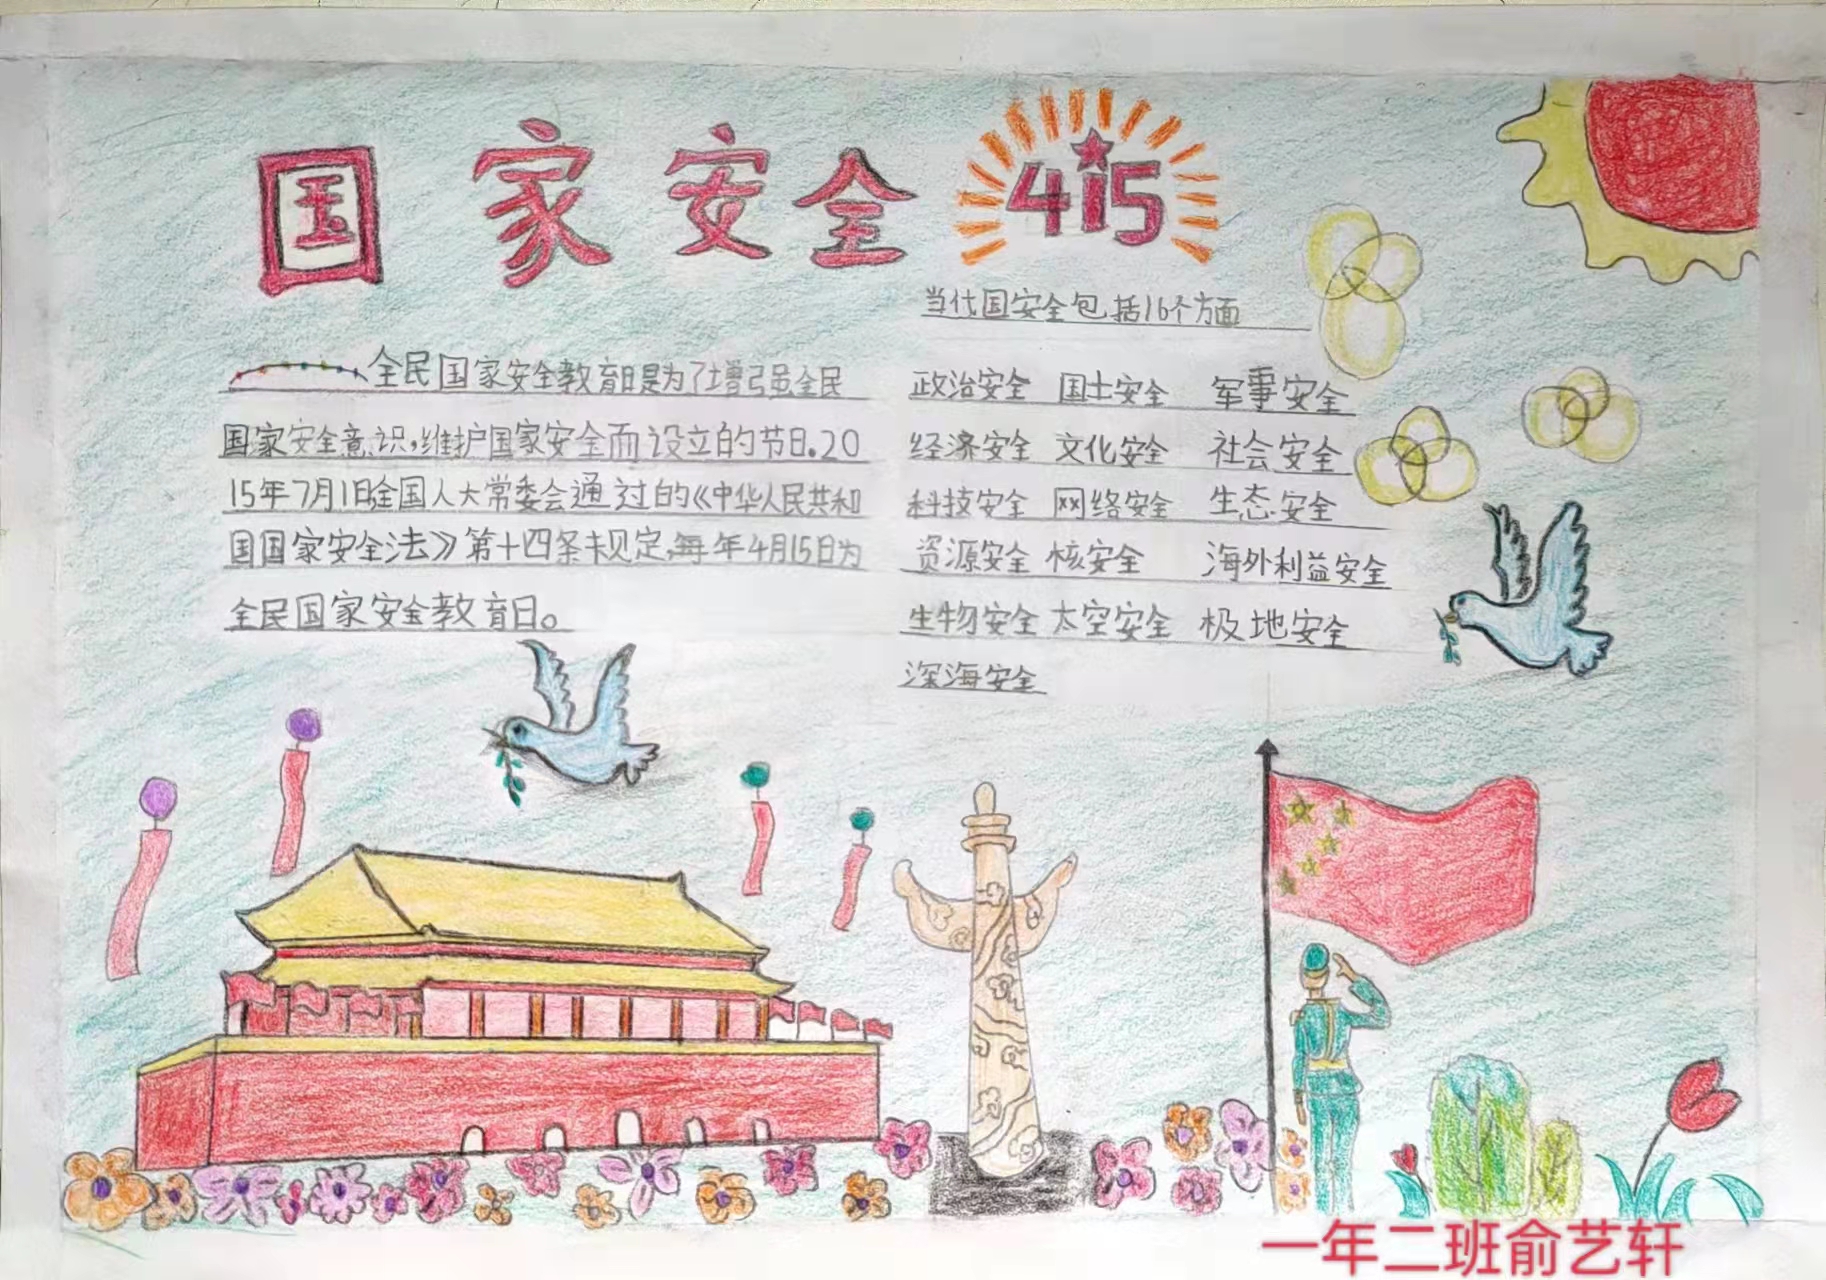 国家安全 415
全民国家安全教育日是为了增强全民
国家安全意识,维护国家安全而设立的节日。20
15年7月1日全国人大常委会通过的《中华人民共和
国国家安全法》第十四条规定,每年4月15日为
全民国家安全教育日。
当代国安全包括16个方面
政治安全 国土安全 军事安全
经济安全 文化安全 社会安全
科技安全 网络安全 生态安全
资源安全 核安全 海外利益安全
生物安全 太空安全 极地安全
深海安全
一年二班俞艺轩